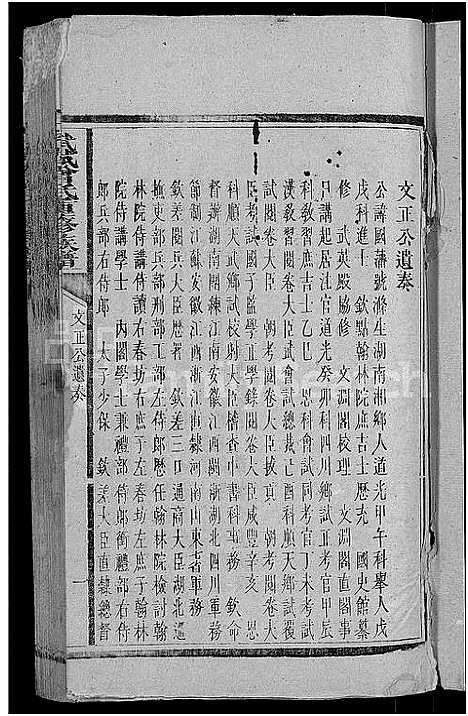 文正公遺奏
公諱國藩號滌生湖南湘鄉人道光甲午科舉人戊
戌科進士 欽點翰林院庶吉士歷充 國史館纂
修 武英殿協修 文淵閣校理 文淵閣直閣事
日講起居注官道光癸卯科四川鄉試正考官甲辰
科教習庶吉士乙巳 恩科會試同考官丁未考試
漢敎習閱卷大臣武會試總裁己酉科順天鄉試覆
試閱卷大臣 朝考閱卷大臣拔貢 朝考閱卷大
臣考試國子監學正學錄閱卷大臣咸豐辛亥 恩
科順天武鄉試校射大臣稽查中書科事務 欽命
督辦湖南江南安徽江西閩浙湖北四川軍務
節制江蘇安徽江西浙江直隸河南山東七省軍務
欽差閱兵大臣歷署 欽差三口通商大臣湖北巡
撫吏部兵部刑部工部左侍郎歷任翰林院檢討翰
林院侍講侍讀右春坊右庶子左春坊左庶子翰林
院侍講學士 內閣學士兼禮部侍郎銜禮部右侍
郎兵部右侍郎 太子少保 欽差大臣直隸總督
文正公遺奏
一
修族譜